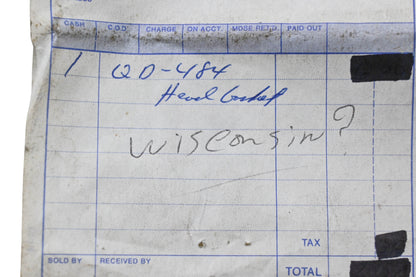 CASH C.O.D. CHARGE ON ACCT. MDSE RET'D PAID OUT
1 QD-484
Head Gasket
Wisconsin?
TAX
SOLD BY RECEIVED BY
TOTAL